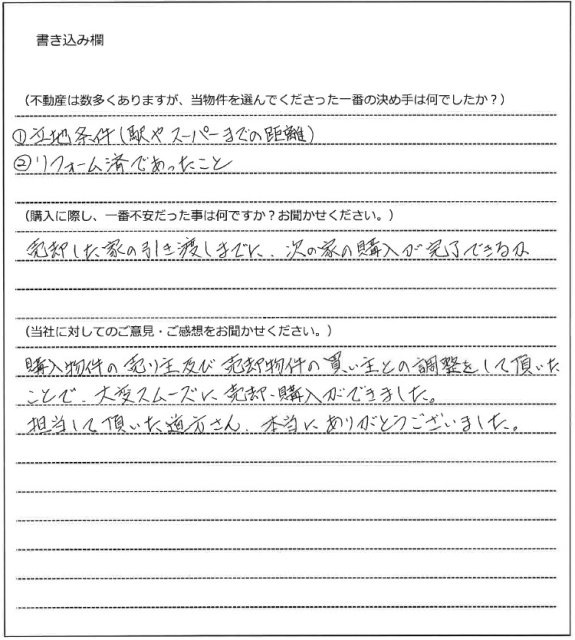 書き込み欄
（不動産は数多くありますが、当物件を選んでくださった一番の決め手は何でしたか？）
①立地条件（駅やスーパーまでの距離）
②リフォーム済であったこと
（購入に際し、一番不安だった事は何ですか？お聞かせください。）
売却した家の引き渡しまでに、次の家の購入が完了できるか
（当社に対してのご意見・ご感想をお聞かせください。）
購入物件の売り主及び売却物件の買い主との調整をして頂いた
ことで、大変スムーズに売却・購入ができました。
担当して頂いた道方さん、本当にありがとうございました。